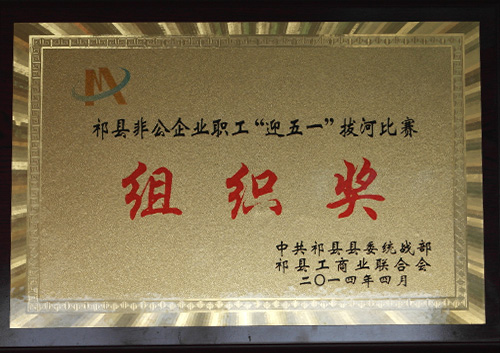 祁县非公企业职工“迎五一”拔河比赛
组织奖
中共祁县县委统战部
祁县工商业联合会
二〇一四年四月